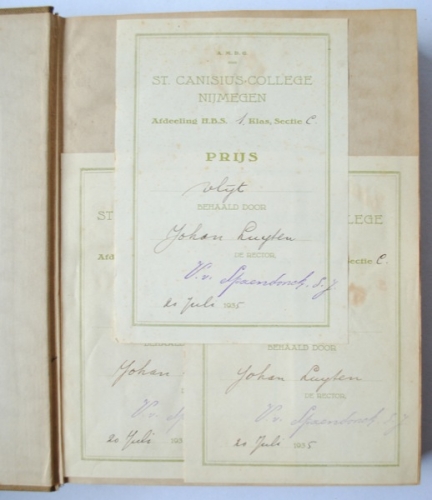 A. M. D. G.
ST. CANISIUS-COLLEGE
NIJMEGEN
Afdeeling H.B.S. 1 Klas, Sectie C.
PRIJS
vlijt
BEHAALD DOOR
Johan Luyten
DE RECTOR,
V. v. Spaendonck. S.J.
20 Juli 1935
ST.
Afd
Johan
V. v. Spa
20 Juli 193
LEGE
ectie C.
BEHAALD DOOR
Johan Luyten
DE RECTOR,
V. v. Spaendonck. S.J.
20 Juli 1935